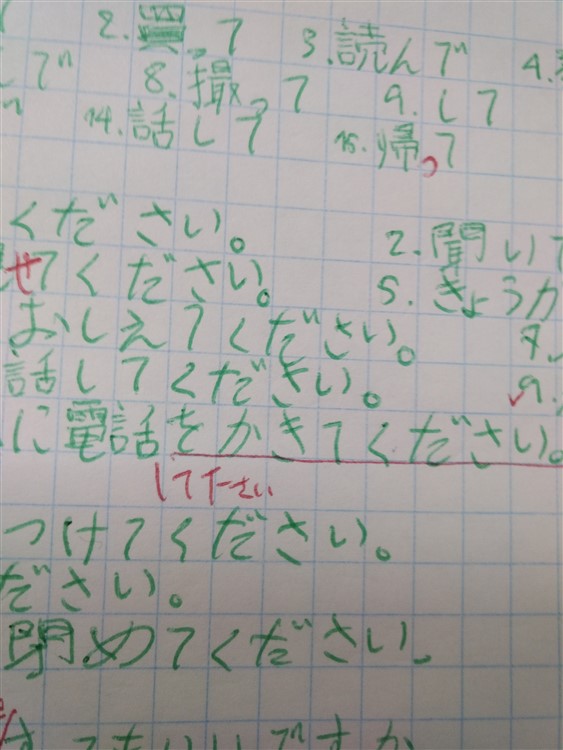 2. 買って 3. 読んで 4.
で 8. 撮って 9. して
14. 話して 15. 帰って
ください。 2. 聞いて
せてください。 5. きょうか
おしえてください。
話してください。 9.
に電話をかきてください。
して下さい
つけてください。
ださい。
閉めてください。
てもいいですか